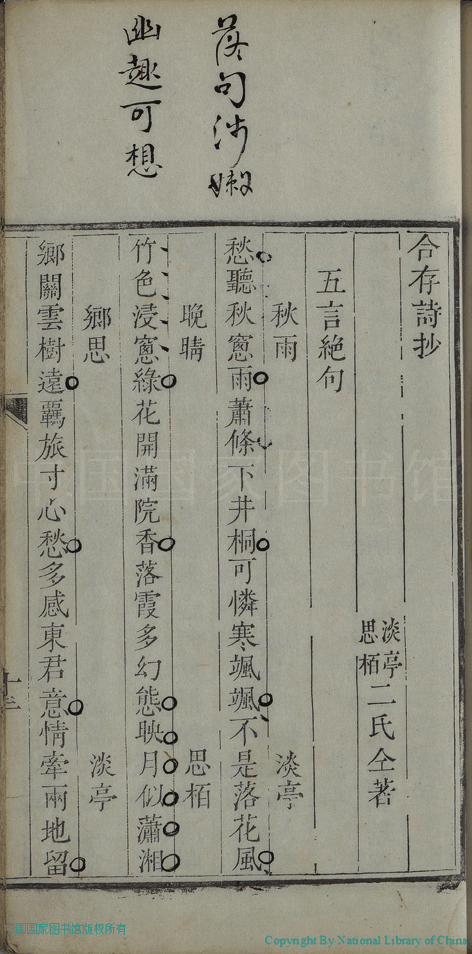 落句涉嫩
幽趣可想
合存詩抄
淡亭
思栢
二氏仝著
五言絶句
秋雨
淡亭
愁聽秋窻雨蕭條下井桐可憐寒颯颯不是落花風
晚晴
思栢
竹色浸窻綠花開滿院香落霞多幻態映月似瀟湘
鄉思
淡亭
鄉關雲樹遠覊旅寸心愁多感東君意情牽兩地留
十三
中国国家图书馆
国国家图书馆版权所有
Copyright By National Library of China